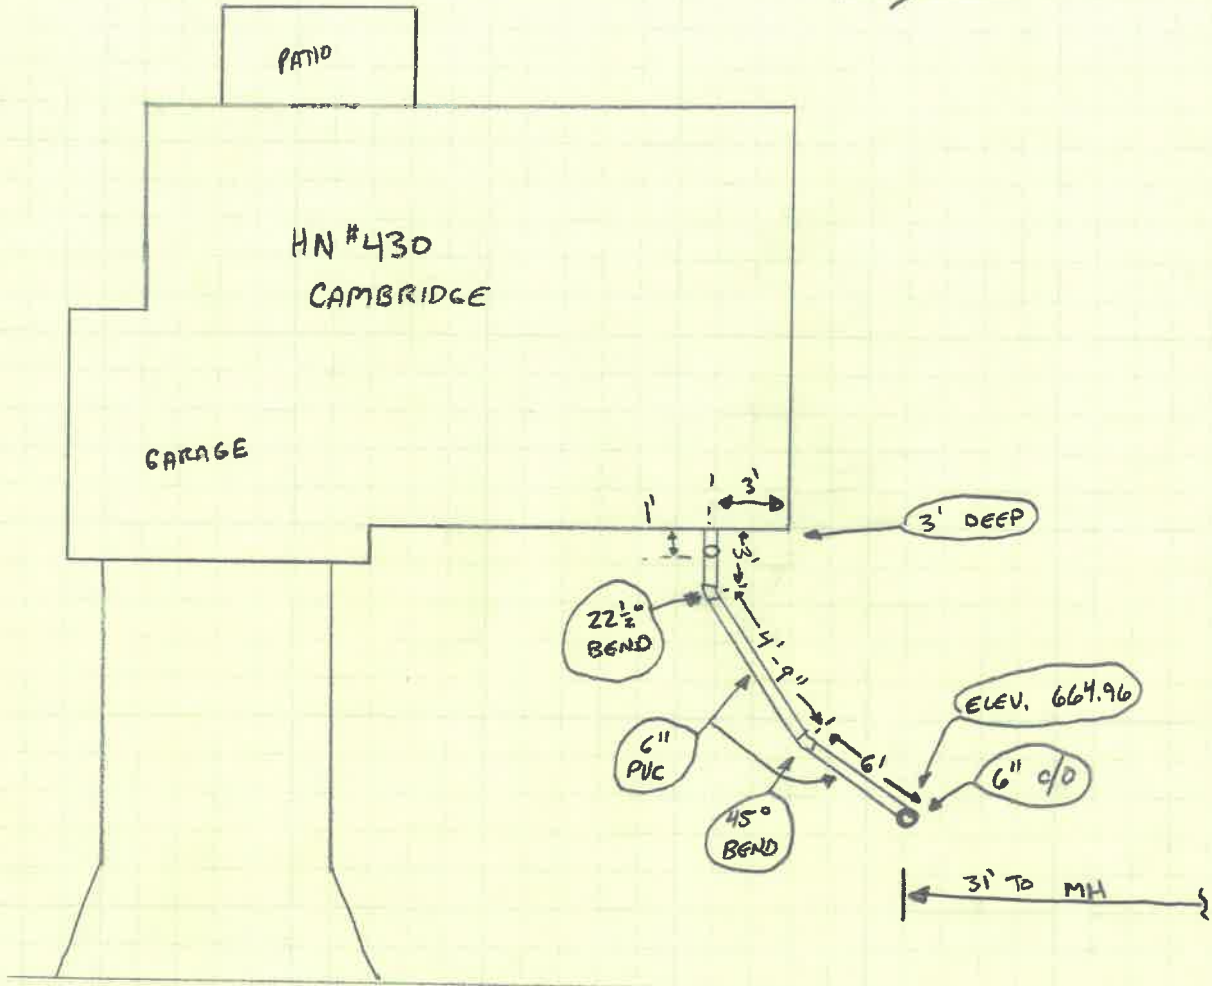 PATIO
HN #430
CAMBRIDGE
GARAGE
1'
3'
3' DEEP
3'
22 1/2°
BEND
4'-9"
ELEV. 664.96
6"
PVC
6'
6" C/O
45°
BEND
31' TO MH